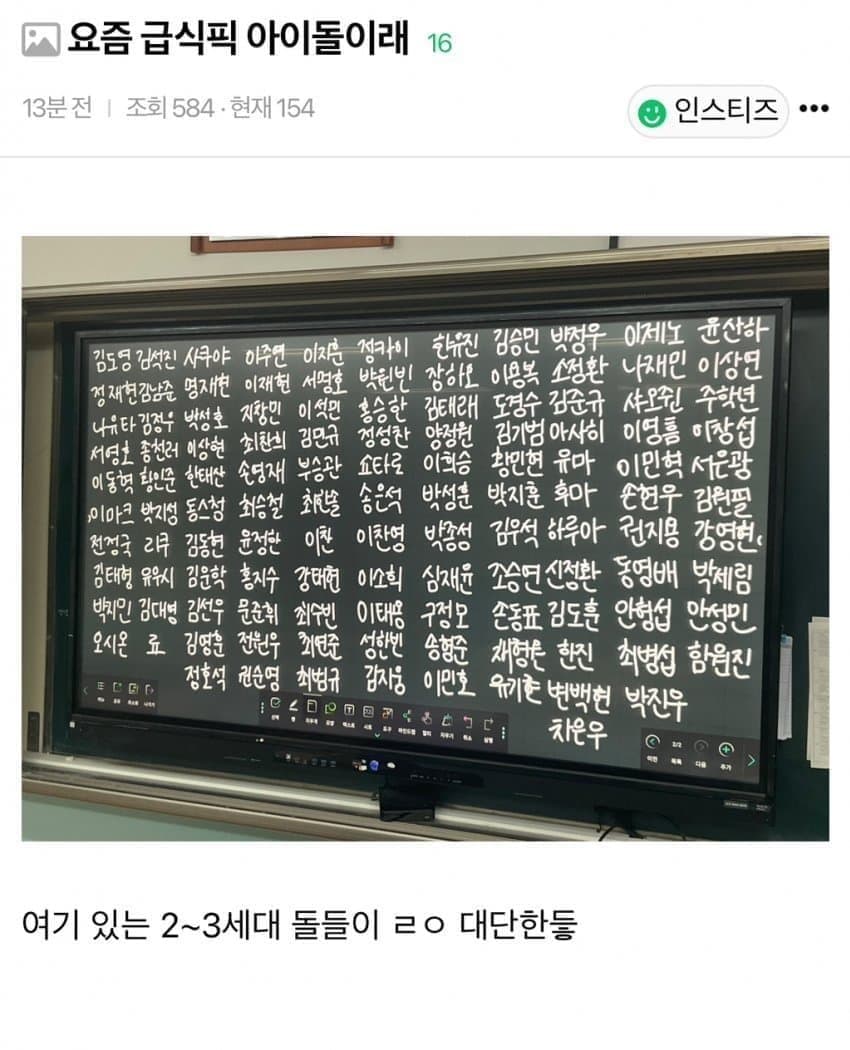 요즘 급식픽 아이돌이래 16
13분 전 | 조회 584 · 현재 154
인스티즈
김도영 김석진 사쿠야 이주연 이지훈 정카이 한유진 김승민 박정우 이제노 윤산하
정재현 김남준 명재현 이재현 서명호 박원빈 장하오 이용복 소정환 나재민 이상연
나유타 김정우 박성호 지창민 이석민 홍승한 김태래 도경수 김준규 샤오쥔 주학년
서영호 종천러 이상현 최찬희 김민규 정성찬 양정원 김기범 아사히 이영흠 이창섭
이동혁 황인준 한태산 손영재 부승관 쇼타로 이희승 황민현 유마 이민혁 서은광
이마크 박지성 동스청 최승철 최한솔 송은석 박성훈 박지훈 후마 손현우 김원필
전정국 리쿠 김동현 윤정한 이찬 이찬영 박종성 김우석 하루아 권지용 강영현
김태형 유우시 김운학 홍지수 강태현 이소희 심재윤 조승연 신정환 동영배 박제형
박지민 김대영 김선우 문준휘 최수빈 이태용 구정모 손동표 김도훈 안형섭 안성민
오시온 료 김영훈 전원우 최연준 성한빈 송형준 채형원 한진 최병섭 함원진
정호석 권순영 최범규 김지웅 이민호 유기현 변백현 박진우
차은우
2/2
이전 목록 다음 추가
여기 있는 2~3세대 돌들이 ㄹㅇ 대단한듷